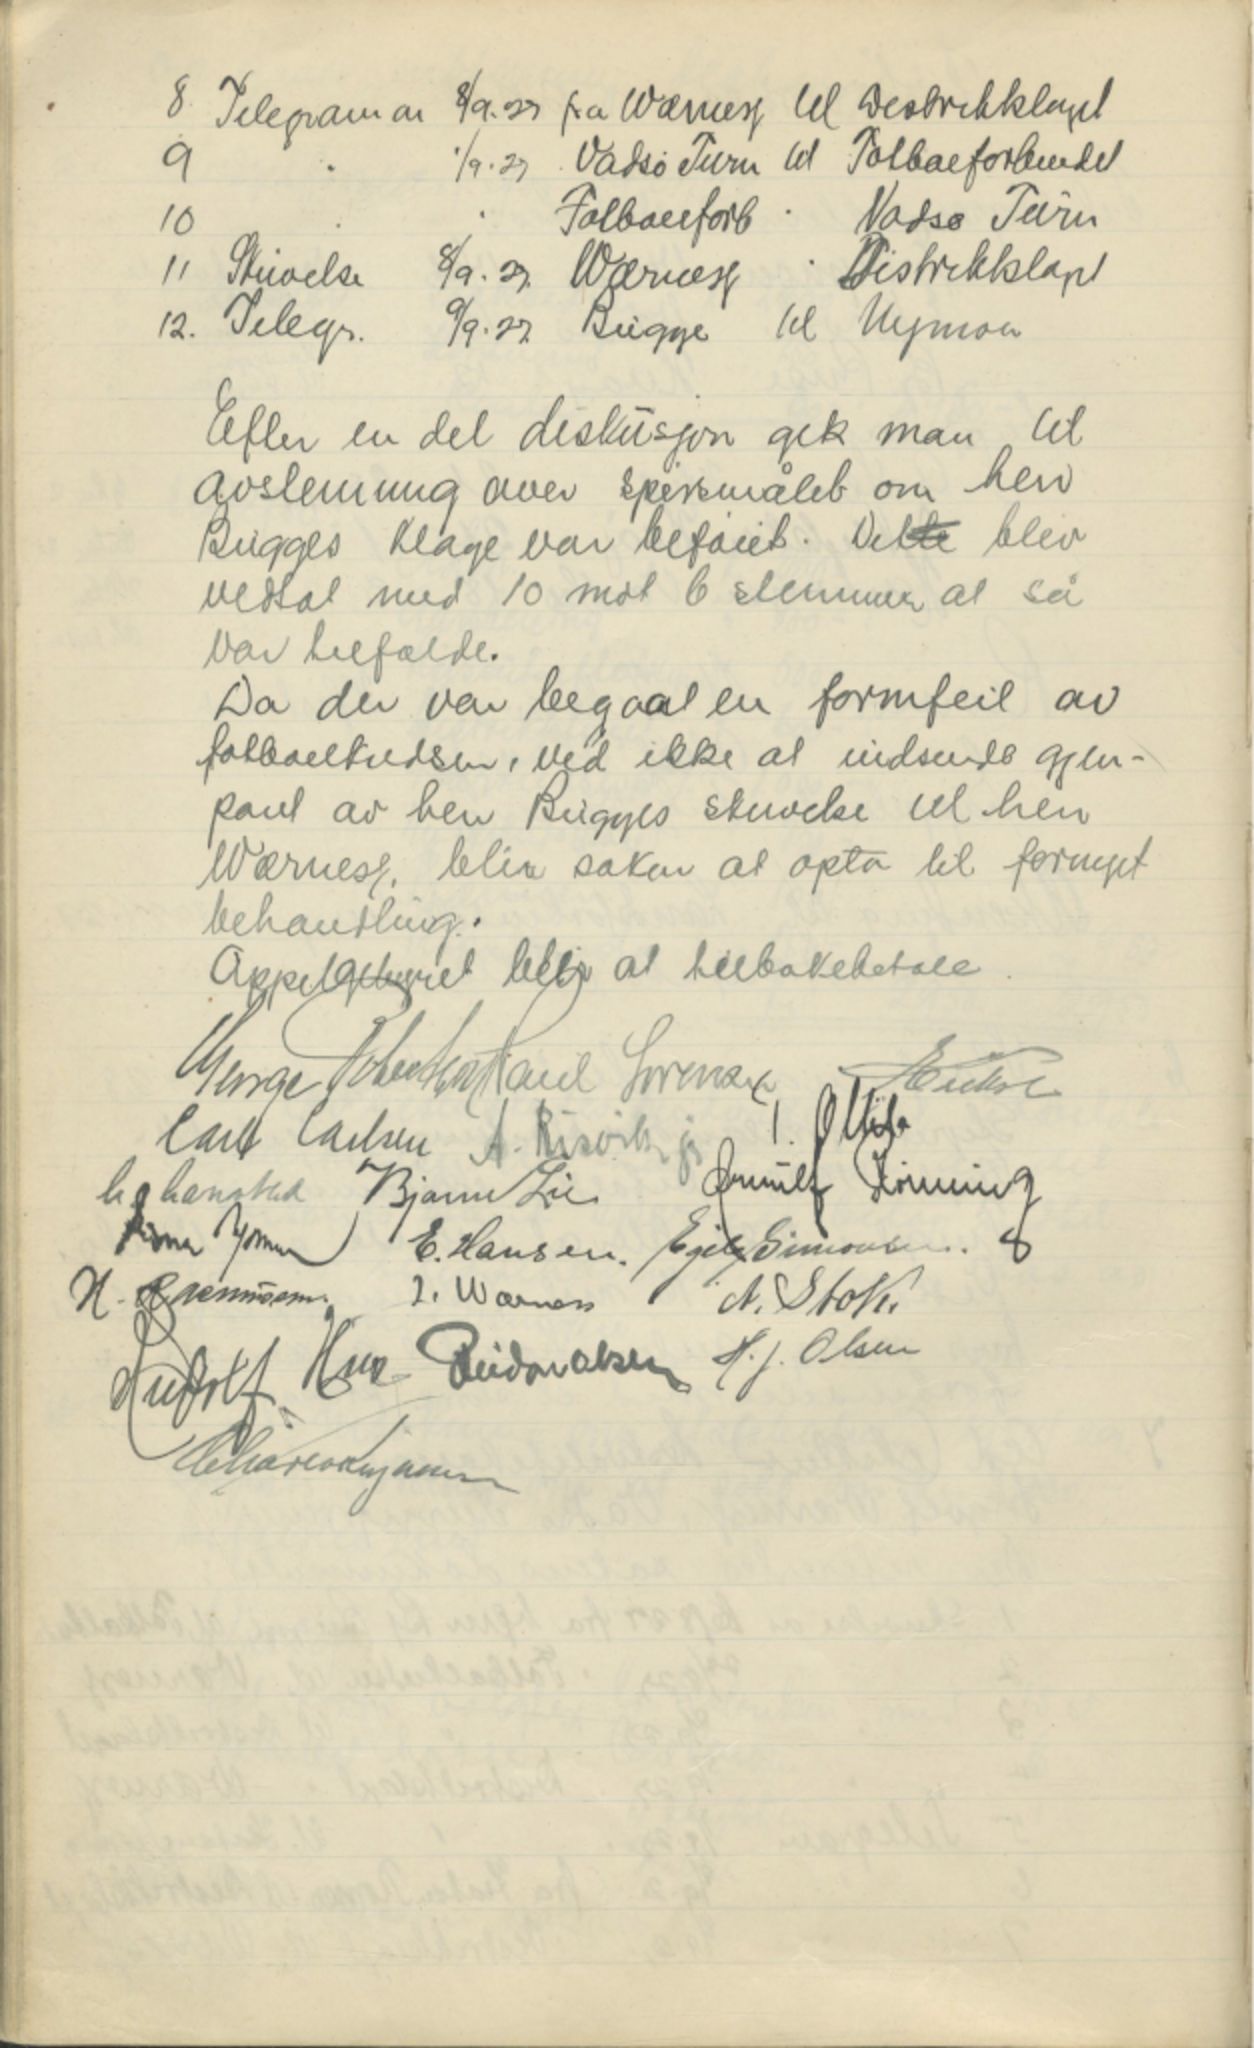 8 Telegram av 8/9.27 fra Wærnesg til Distriktslaget
9 " /9.27 Vadsö Turn til Fotballforbundet
10 " " Fotballforb " Vadsø Turn
11 Skrivelse 8/9.27 Wærnesg " Distriktslaget
12. Telegr. 9/9.27 Bugge til Nymoen
Efter en del diskusjon gik man til
avstemning over spörsmålet om herr
Bugges klage var beföiet. Det blev
vedtat med 10 mot 6 stemmer at så
var tilfælde.
Da der var begaat en formfeil av
fotballkredsen, ved ikke at indsende gjen-
part av herr Bugges skrivelse til herr
Wærnesg, blir saken at opta til fornyet
behandling.
Appelgebyret blir at tilbakebetale
George Robertson Paul Sorensen
Carl Carlsen A. Risvik jr
Bjarne Lie Arnulf Rönning
E. Hansen. Egil Simonsen. 8
H. Rasmussen. I. Wærness A. Stok.
Rudolf Reidar Olsen H. J. Olsen